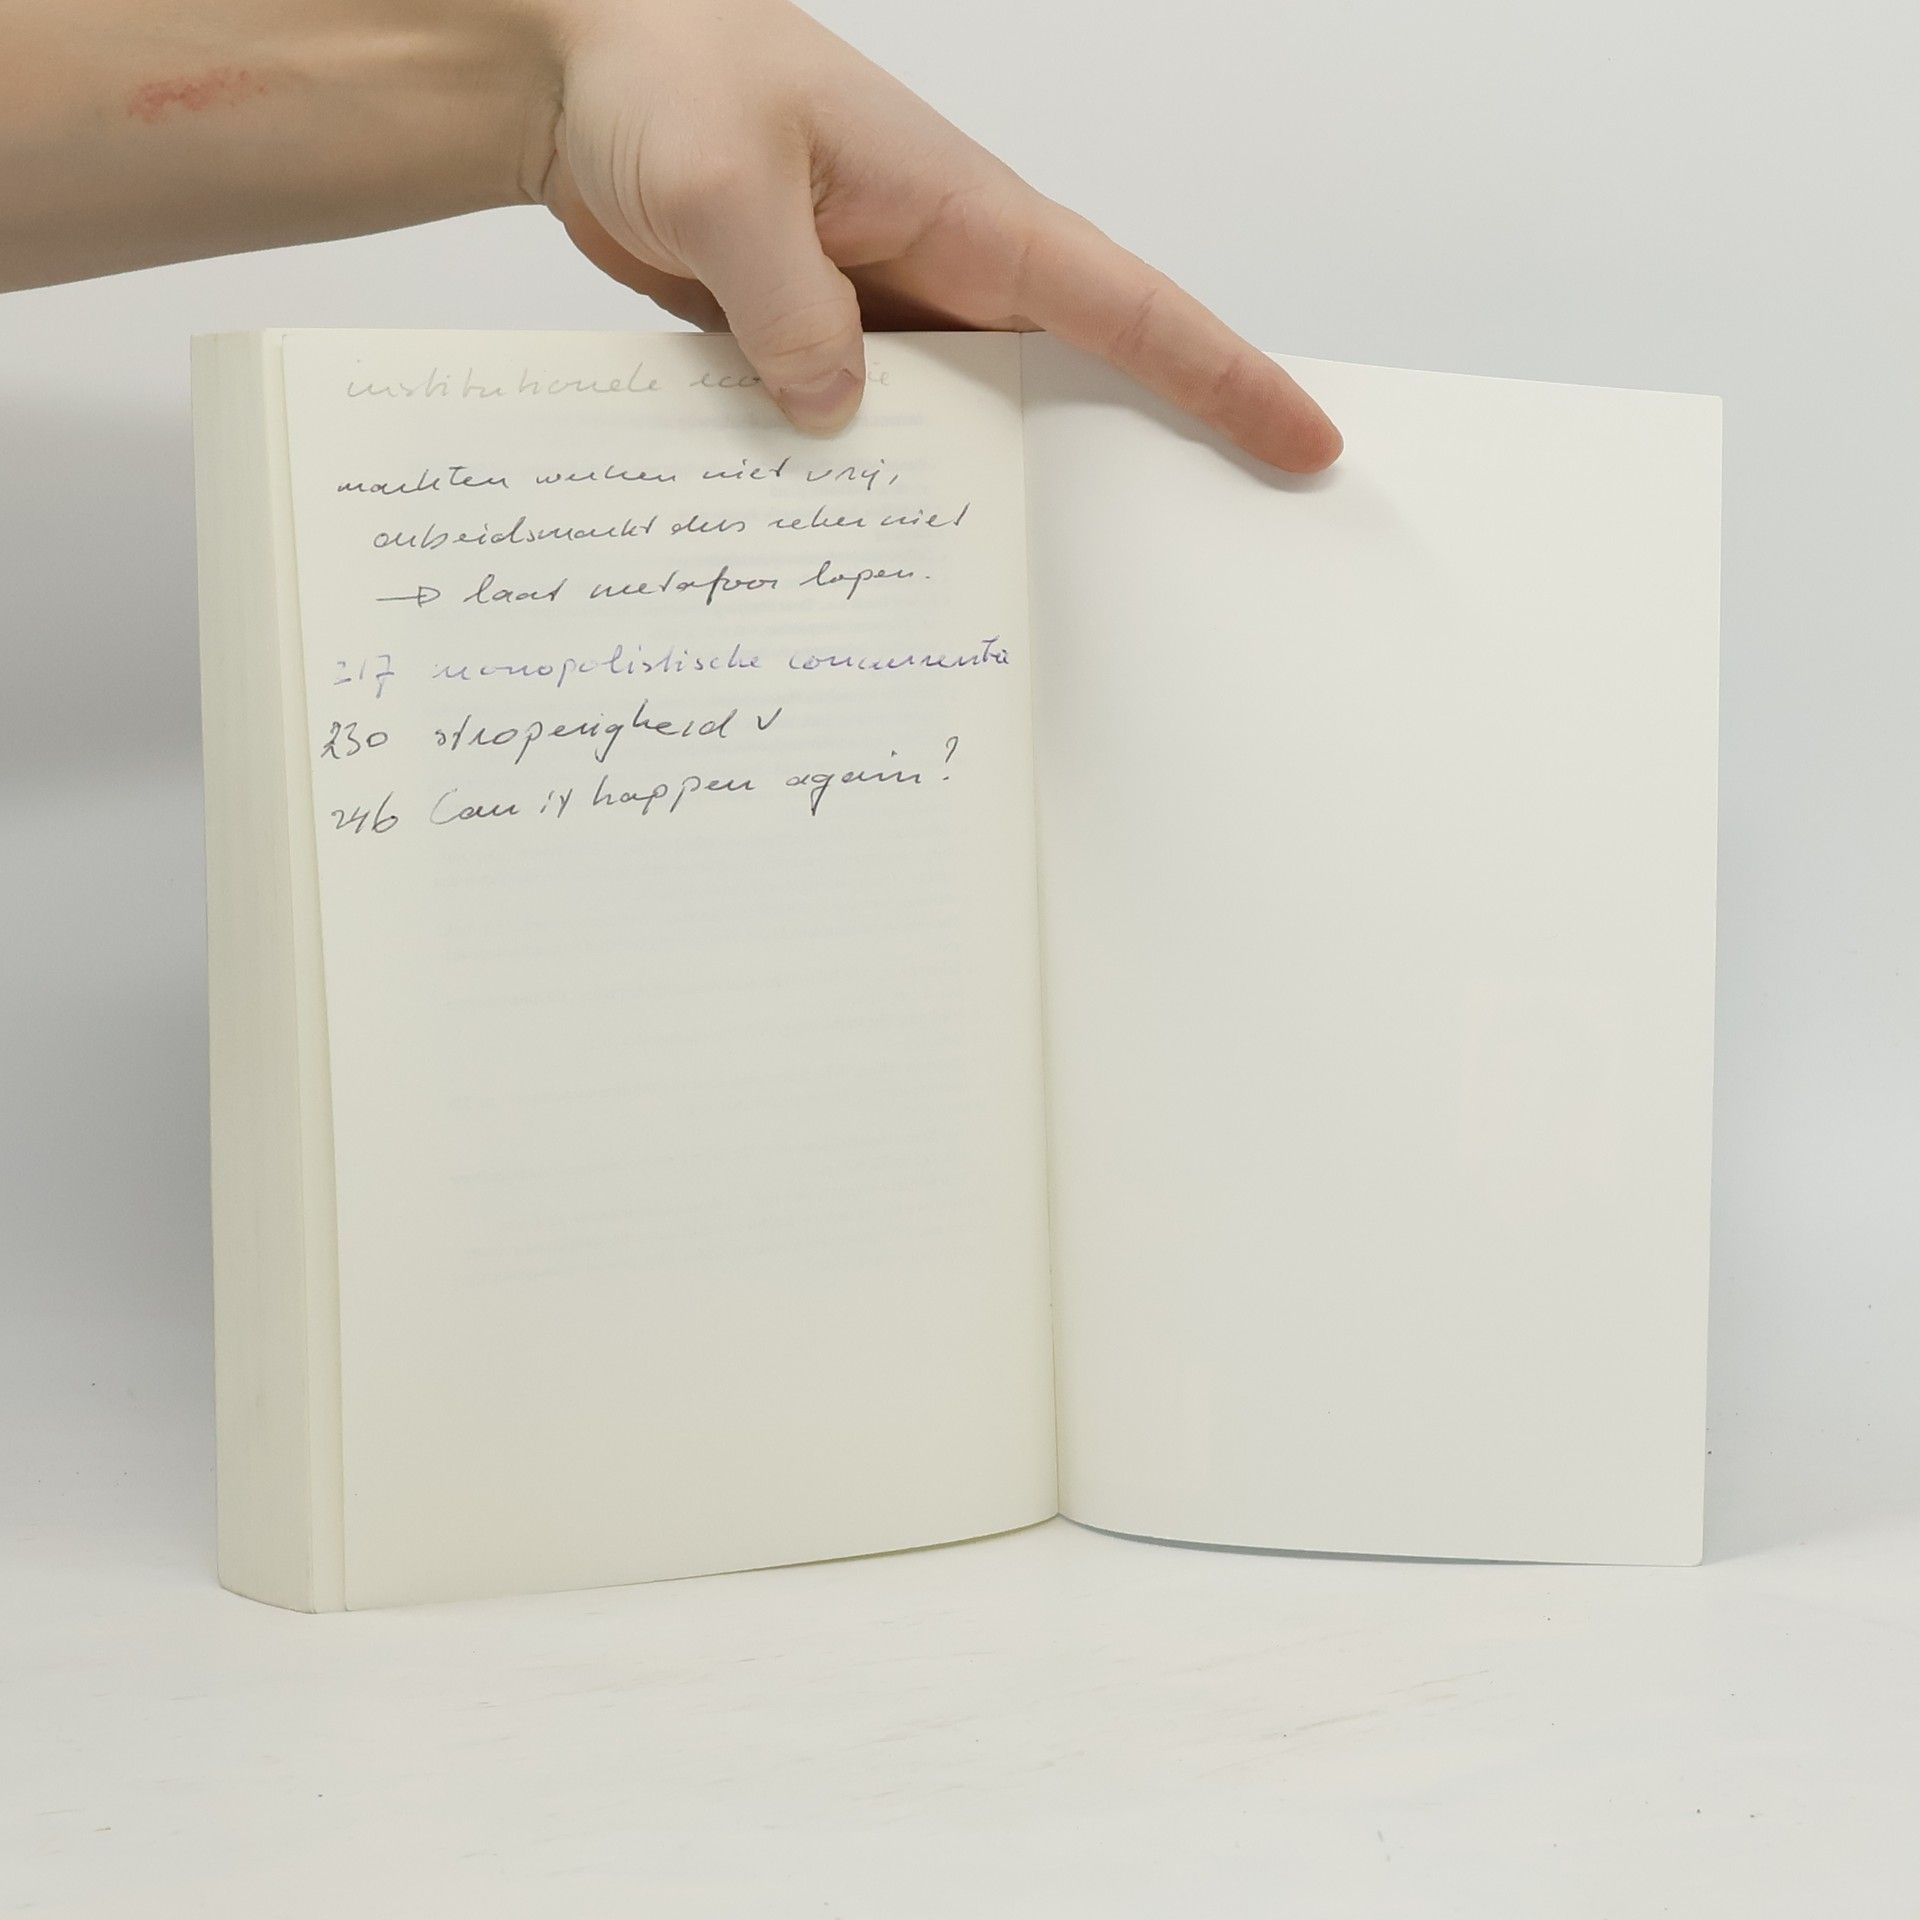 institutionele eco ie
markten werken niet vrij,
arbeidsmarkt dus zeker niet
→ laat metafoor lopen.
217 monopolistische concurrentie
230 stroperigheid v
246 Can it happen again?